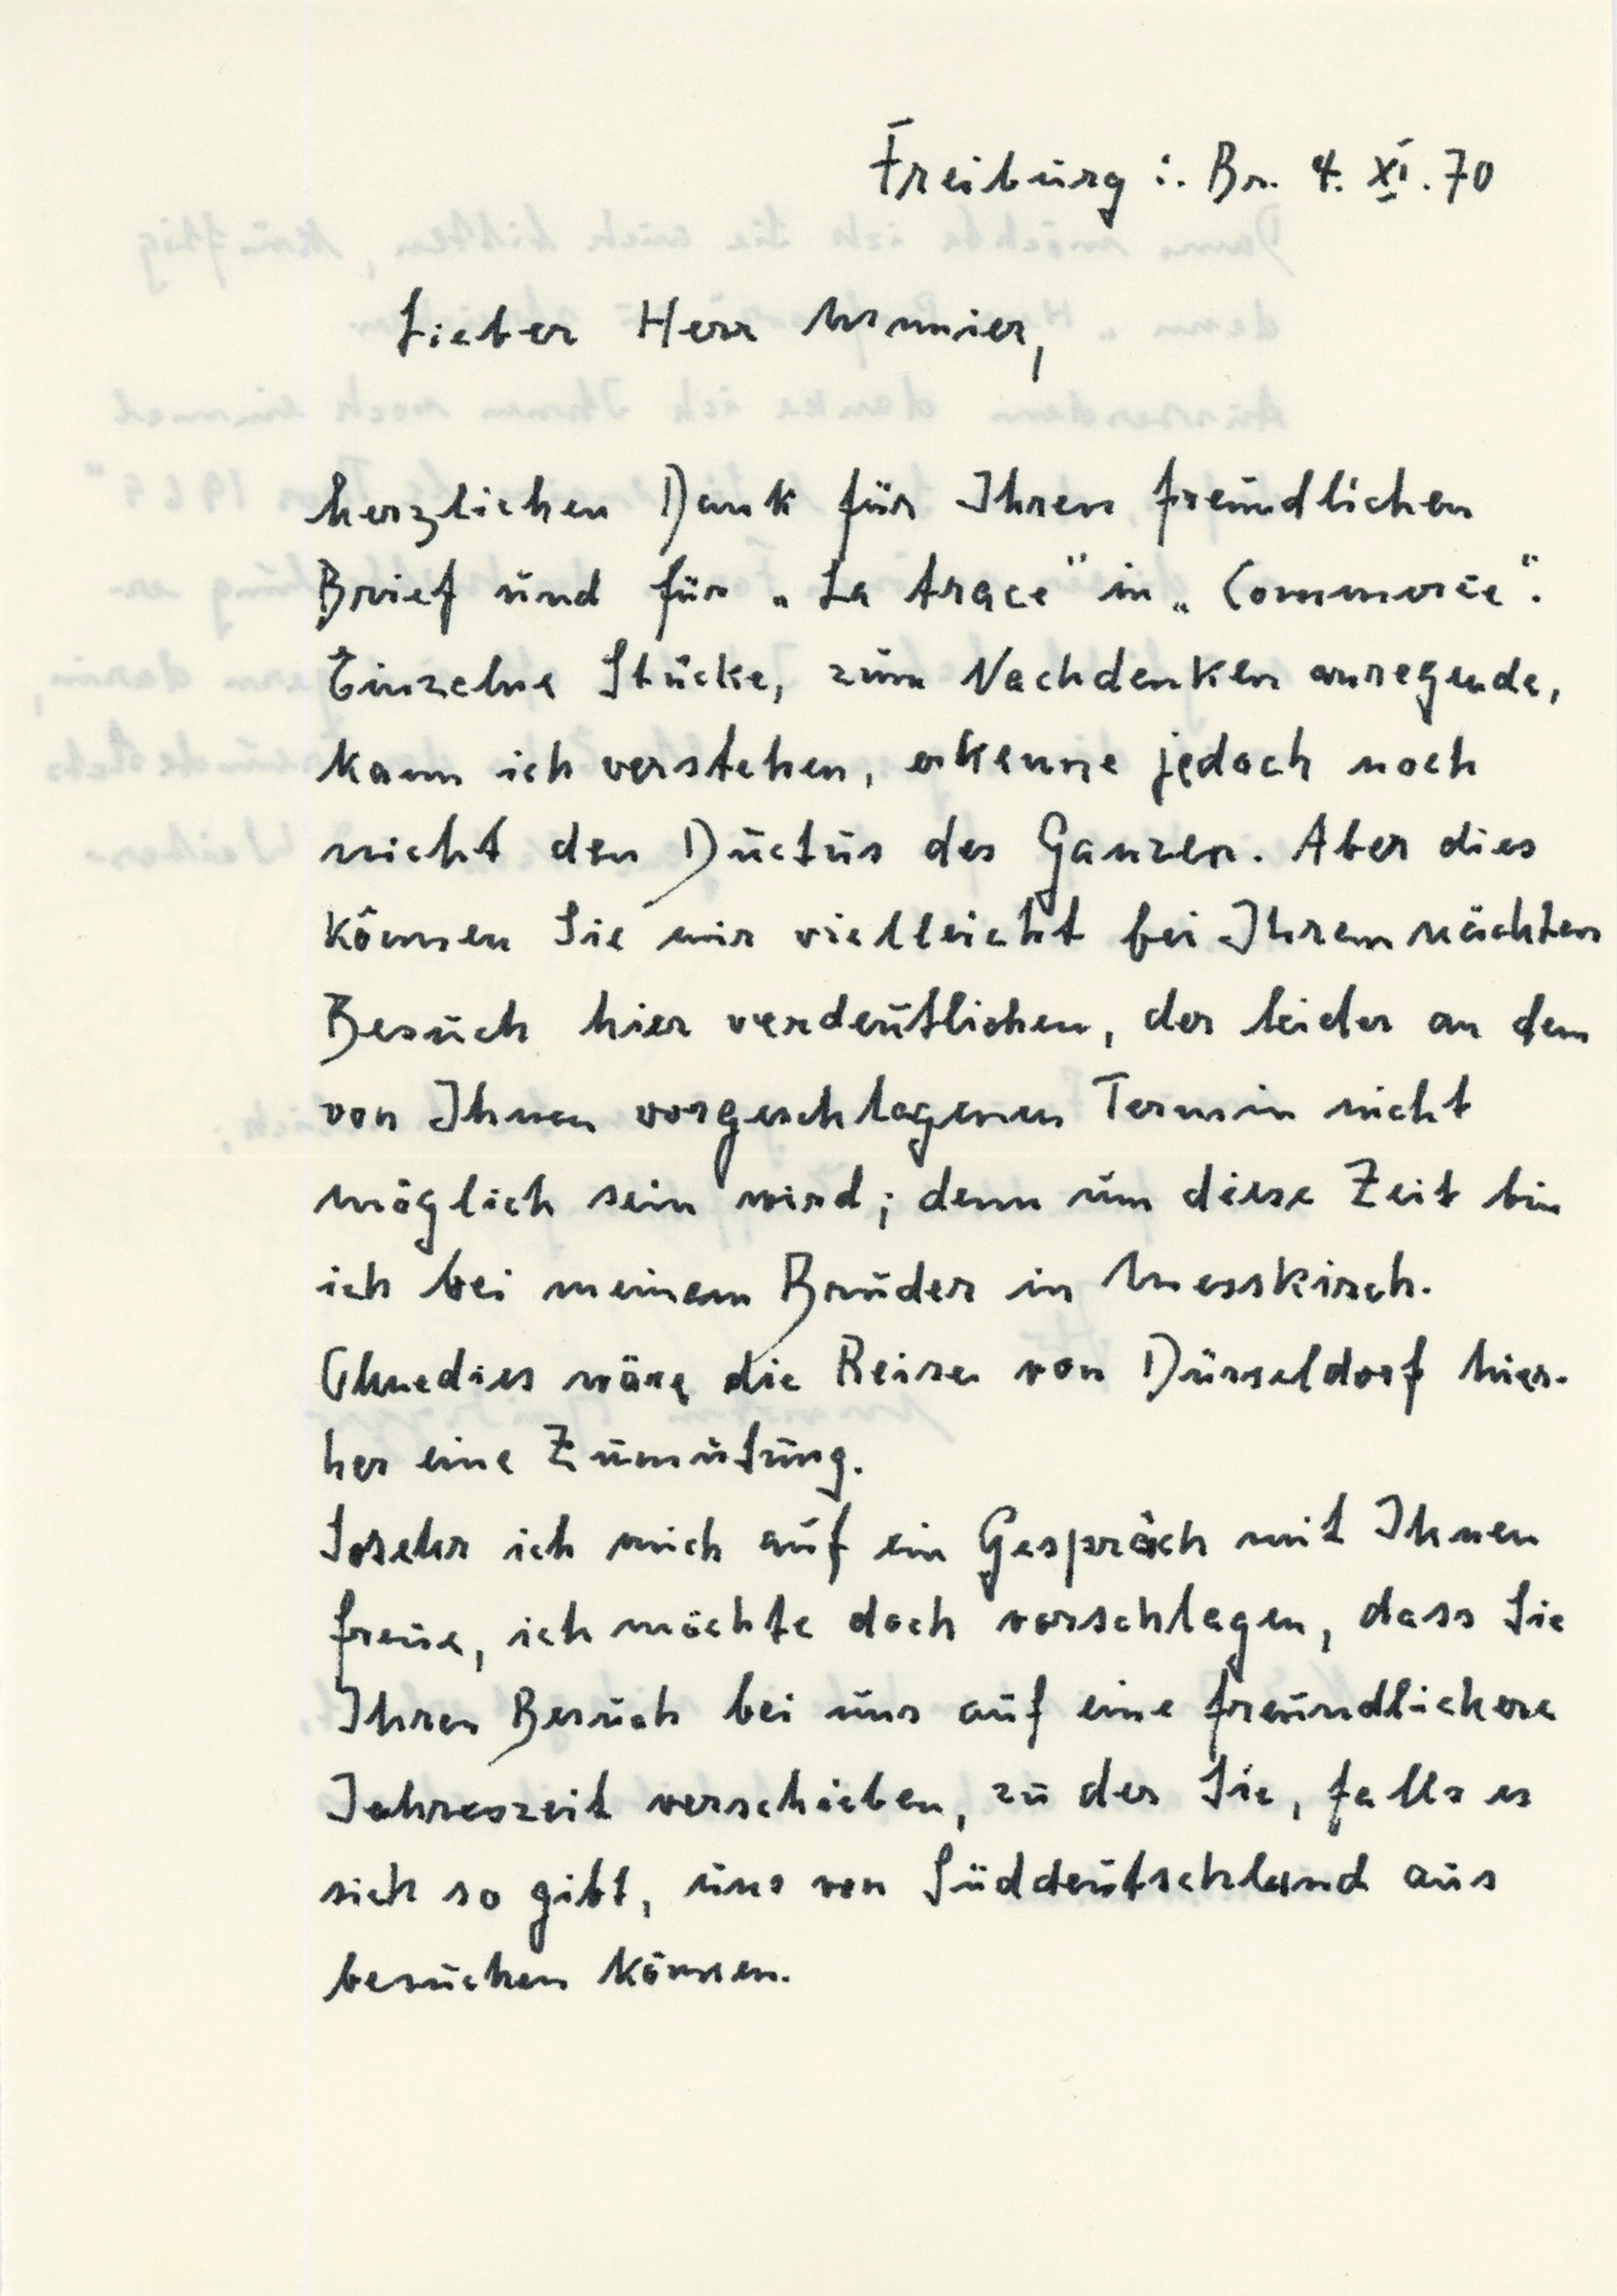 Freiburg i. Br. 4. XI. 70
Lieber Herr Munier,
herzlichen Dank für Ihren freundlichen
Brief und für „La trace" in „Commerce".
Einzelne Stücke, zum Nachdenken anregende,
kann ich verstehen, erkenne jedoch noch
nicht den Ductus des Ganzen. Aber dies
können Sie mir vielleicht bei Ihrem nächten
Besuch hier verdeutlichen, der leider an dem
von Ihnen vorgeschlagenen Termin nicht
möglich sein wird; denn um diese Zeit bin
ich bei meinem Bruder in Messkirch.
Ohnedies wäre die Reise von Düsseldorf hier-
her eine Zumutung.
Sosehr ich mich auf ein Gespräch mit Ihnen
freue, ich möchte doch vorschlagen, dass Sie
Ihren Besuch bei uns auf eine freundlichere
Jahreszeit verschieben, zu der Sie, falls es
sich so gibt, uns von Süddeutschland aus
besuchen können.